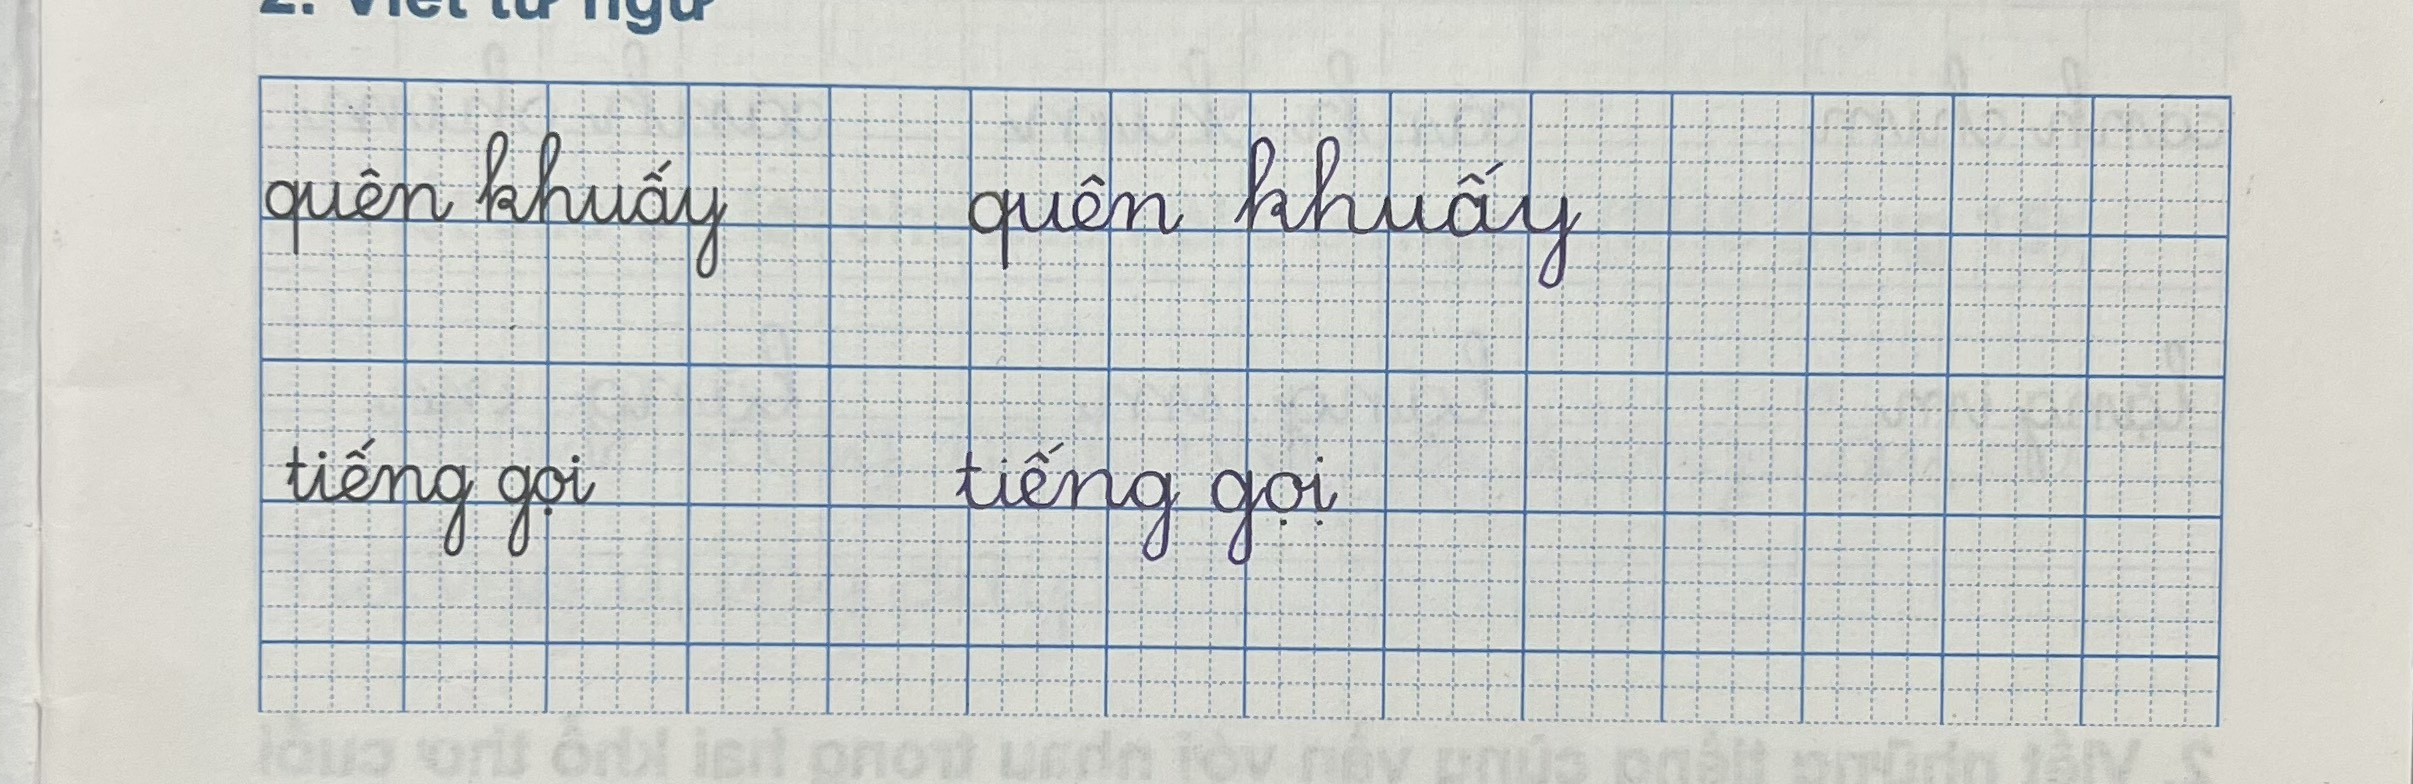 2. Viết từ ngữ
quên khuấy quên khuấy
tiếng gọi tiếng gọị